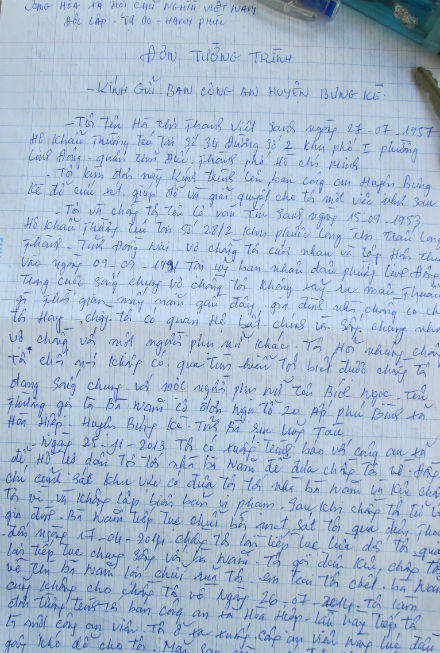 CỘNG HÒA XÃ HỘI CHỦ NGHĨA VIỆT NAM
ĐỘC LẬP - TỰ DO - HẠNH PHÚC
ĐƠN TƯỜNG TRÌNH
- KÍNH GỬI: BAN CÔNG AN HUYỆN BƯNG KÈ.
- Tôi tên Hà Thị Thanh Việt sanh ngày 27-07-1957
Hộ khẩu thường trú tại số 34 đường số 2 khu phố I phường
Linh Đông - quận Thủ Đức. Thành phố Hồ Chí Minh
- Tôi làm đơn này kính trình lên ban công an Huyện Bưng
Kè để cứu xét, giúp đỡ và giải quyết cho tôi một việc như sau
- Tôi và chồng tôi tên Lê Văn sanh ngày 15-09-1953
Hộ khẩu thường trú tại số 28/2 khu phước Long
Thành - Tỉnh Đồng Nai - Vợ chồng tôi cưới nhau và lập hôn thú
vào ngày 09-03-1991 Tại ủy ban nhân dân phường Linh Đông
Trong cuộc sống chung vợ chồng tôi không xảy ra mâu thuẫn
gì thời gian mấy năm gần đây, gia đình
tôi hay chồng tôi có quan hệ bất chính và sống chung như
vợ chồng với một người phụ nữ khác. Tôi hỏi nhưng chồng
tôi chối nói không có. qua tìm hiểu tôi biết được chồng tôi
đang sống chung với một người phụ nữ tên Bích Ngọc. Tên
thường gọi là Bà Năm cổ đơn ngụ tổ 20 Ấp Phú Bình xã
Hòa Hiệp - Huyện Bưng Kè. Tỉnh Bà Rịa Vũng Tàu
- Ngày 25-11-2013 Tôi có xuống trình báo với công an xã
để họ dẫn tôi tới nhà bà Năm để đưa chồng tôi về.
chí cảnh sát khu vực có đưa tôi tới nhà bà Năm và kêu chồng
tôi về và không lập biên bản vi phạm. Sau khi chồng tôi về
gia đình. Bà Năm tiếp tục chửi bới
đến ngày 17-04-2014. chồng tôi lại tiếp tục
lại tiếp tục chung sống với bà Năm. Tôi gọi điện kêu chồng tôi
về thì bà Năm lên chửi rủa tôi
cũng không cho chồng tôi về Ngày 26-07-2014. Tôi làm
đơn tường trình lên ban công an xã Hòa Hiệp. lần này tiếp tôi
là một công an viên. Tôi ở xa xuống công an viên này
gây khó dễ cho tôi.